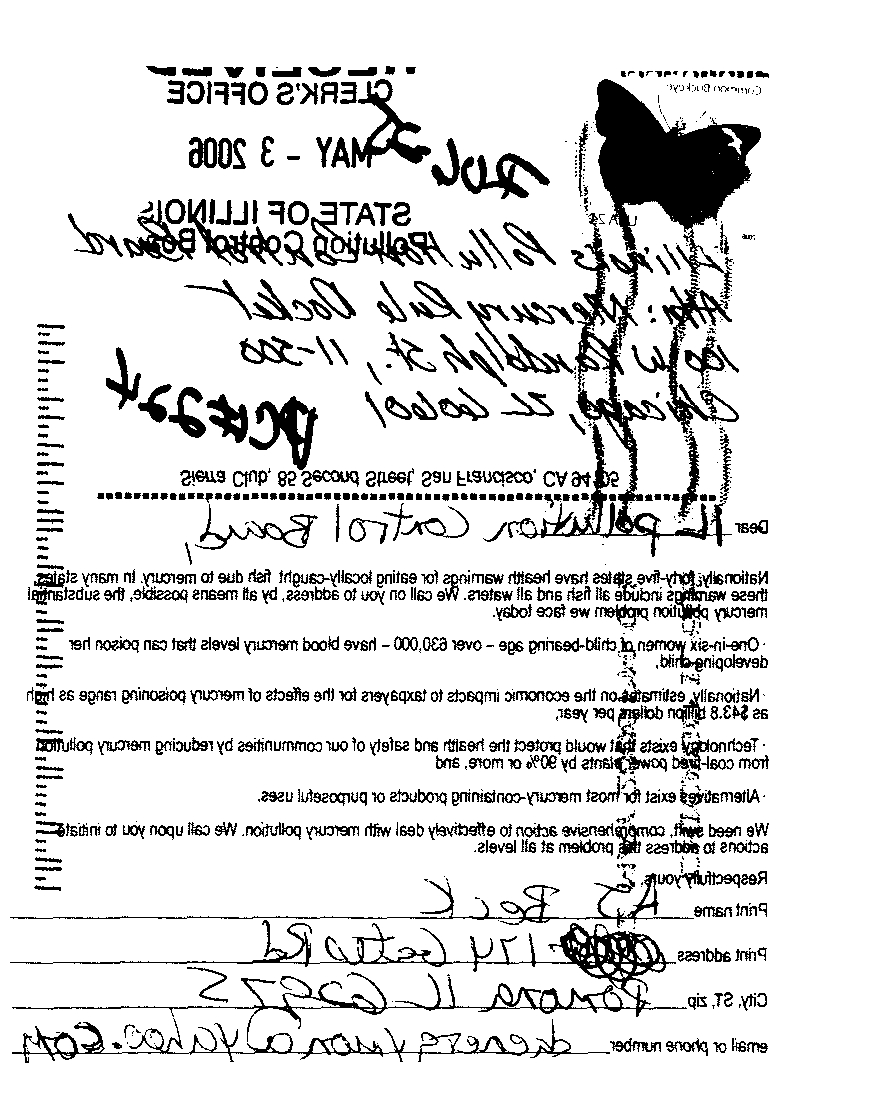 RECEIVED
CLERK'S OFFICE
MAY - 3 2006
STATE OF ILLINOIS
Pollution Control Board
Common Buckeye
USA 24
Illinois Pollution Control Board
Attn: Mercury Rule Docket
100 W Randolph St., 11-500
Chicago, IL 60601
Sierra Club, 85 Second Street, San Francisco, CA 94105
Dear IL Pollution Control Board,
Nationally, forty-five states have health warnings for eating locally-caught fish due to mercury. In many states,
these warnings include all fish and all waters. We call on you to address, by all means possible, the substantial
mercury pollution problem we face today.
· One-in-six women of child-bearing age – over 630,000 – have blood mercury levels that can poison her
developing child,
· Nationally, estimates on the economic impacts to taxpayers for the effects of mercury poisoning range as high
as $43.8 billion dollars per year,
· Technology exists that would protect the health and safety of our communities by reducing mercury pollution
from coal-fired power plants by 90% or more, and
· Alternatives exist for most mercury-containing products or purposeful uses.
We need swift, comprehensive action to effectively deal with mercury pollution. We call upon you to initiate
actions to address this problem at all levels.
Respectfully yours,
Print name AJ Beck
Print address 174 Gatto Rd
City, ST, zip Pomona IL 62975
email or phone number @yahoo.com